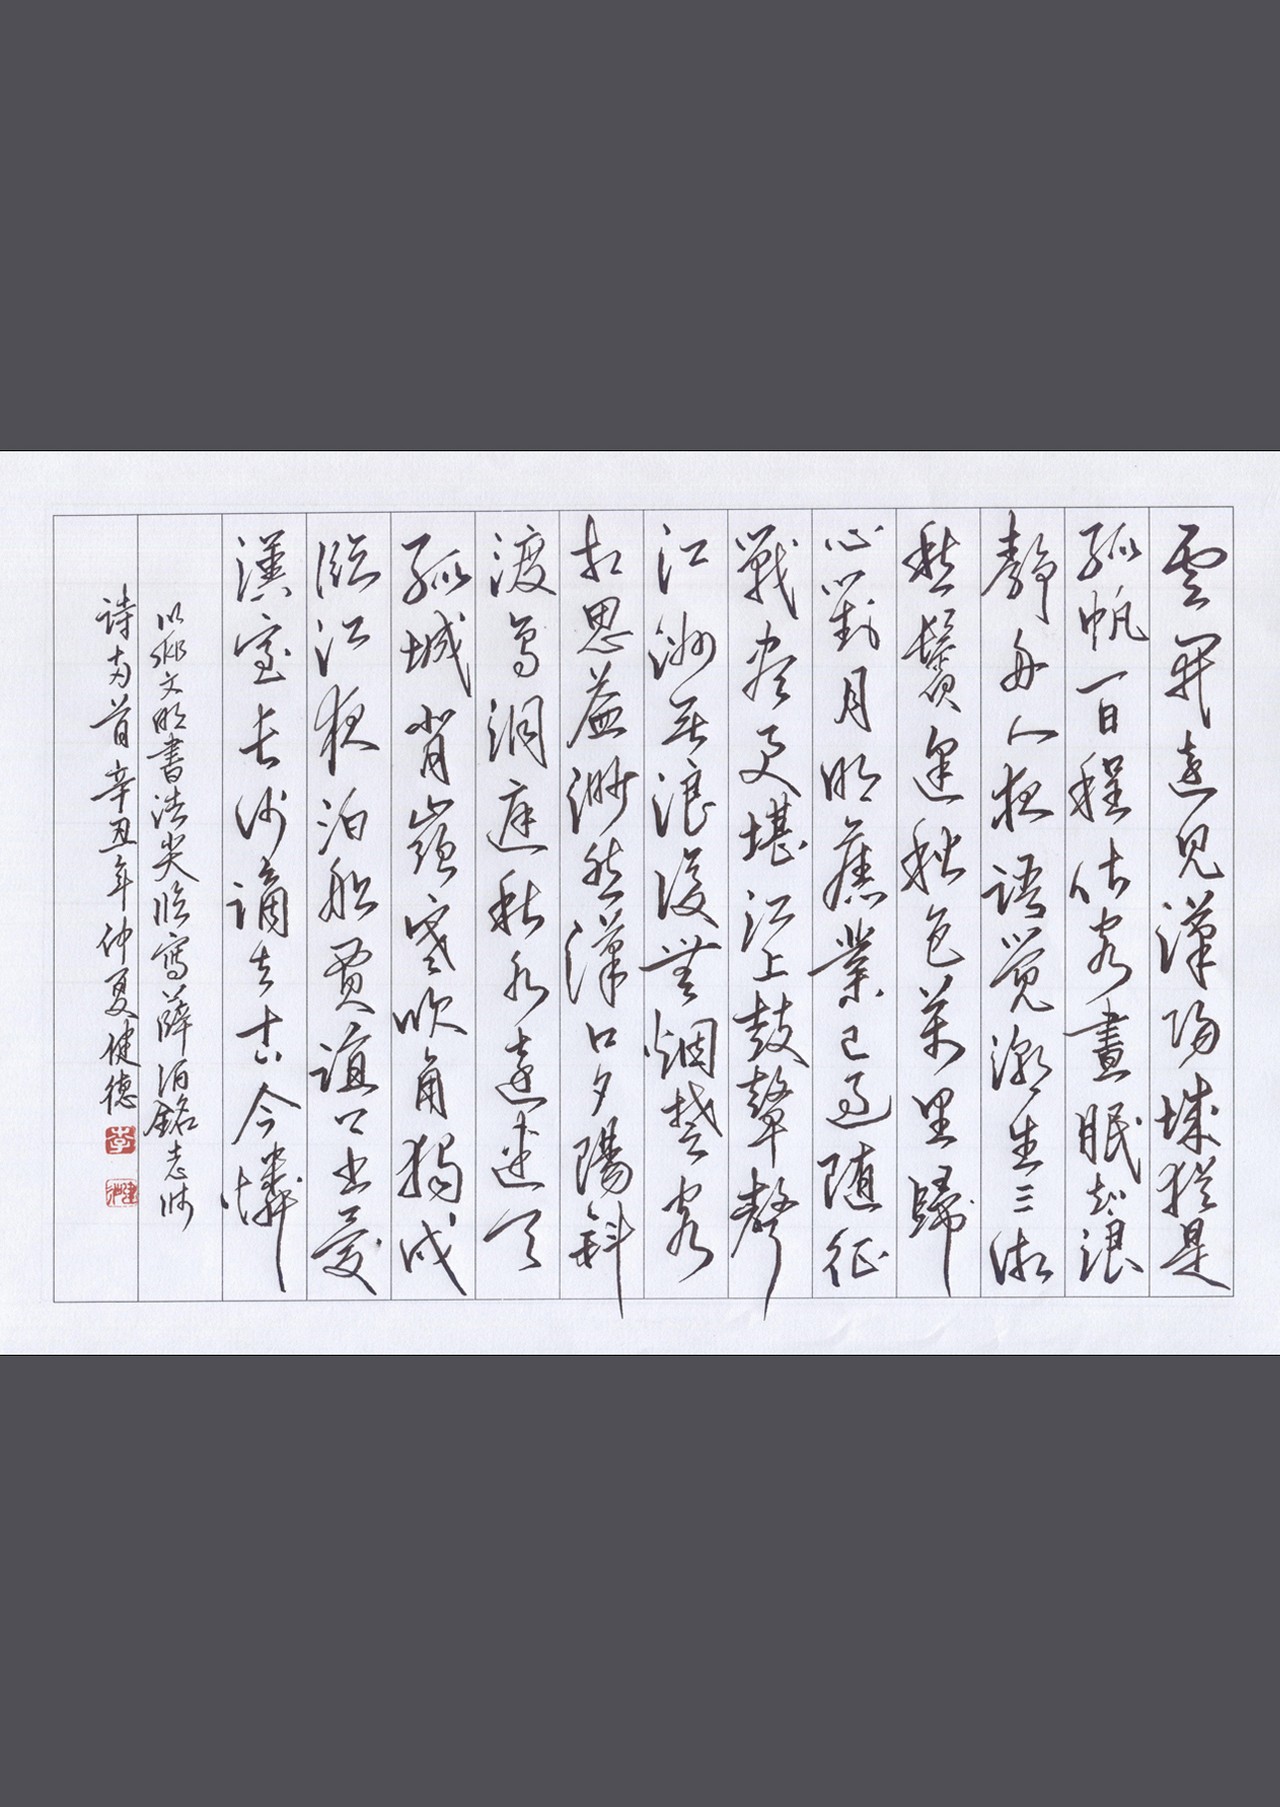 雲開遠見漢陽城猶是
孤帆一日程估客晝眠知浪
静舟人夜語覺潮生三湘
愁鬢逢秋色萬里歸
心對月明舊業已过随征
戰盡更堪江上鼓鼙聲
江洲無浪復無烟楚客
相思益渺然漢口夕陽斜
渡鳥洞庭秋水遠連天
孤城背嶺寒吹角獨戍
臨江夜泊船賈誼上書憂
漢室長沙謫去古今憐
以文明書法臨寫薛泊銘老师
詩两首辛丑年仲夏健德
李